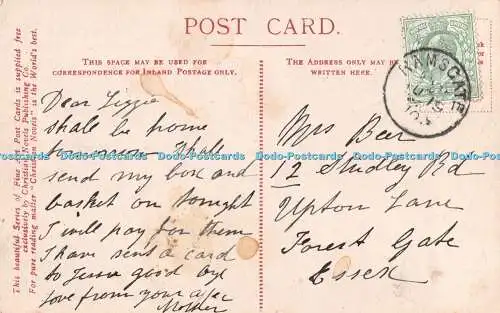 POST CARD.
THIS SPACE MAY BE USED FOR
CORRESPONDENCE FOR INLAND POSTAGE ONLY.
THE ADDRESS ONLY MAY BE
WRITTEN HERE.
This beautiful Series of Fine Art Post Cards is supplied free
exclusively by Christian Novels Publishing Co.
For pure reading matter "Christian Novels" is the World's best.
Dear Lizzie
shall be home
tomorrow shall
send my box and
basket on tonight
I will pay for them
I have sent a card
to Jessie good bye
love from your affec
Mother
Mrs Beer
12 Studley Rd
Upton Lane
Forest Gate
Essex
RAMSGATE
Dodo-Postcards Dodo-Postcards Dodo-Postcards Dodo-Postcards